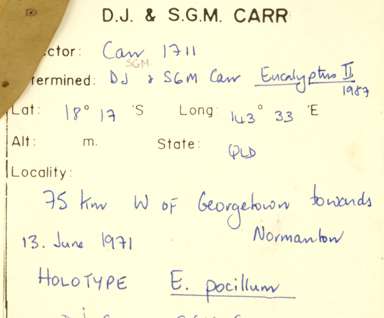 D.J. & S.G.M. CARR
ector: Carr 1711
SGM
termined: DJ & SGM Carr Eucalyptus II
1987
Lat: 18° 17 'S Long: 143° 33 'E
Alt: m. State: QLD
Locality:
75 km W OF Georgetown towards
Normanton
13. June 1971
HOLOTYPE E. pocillum